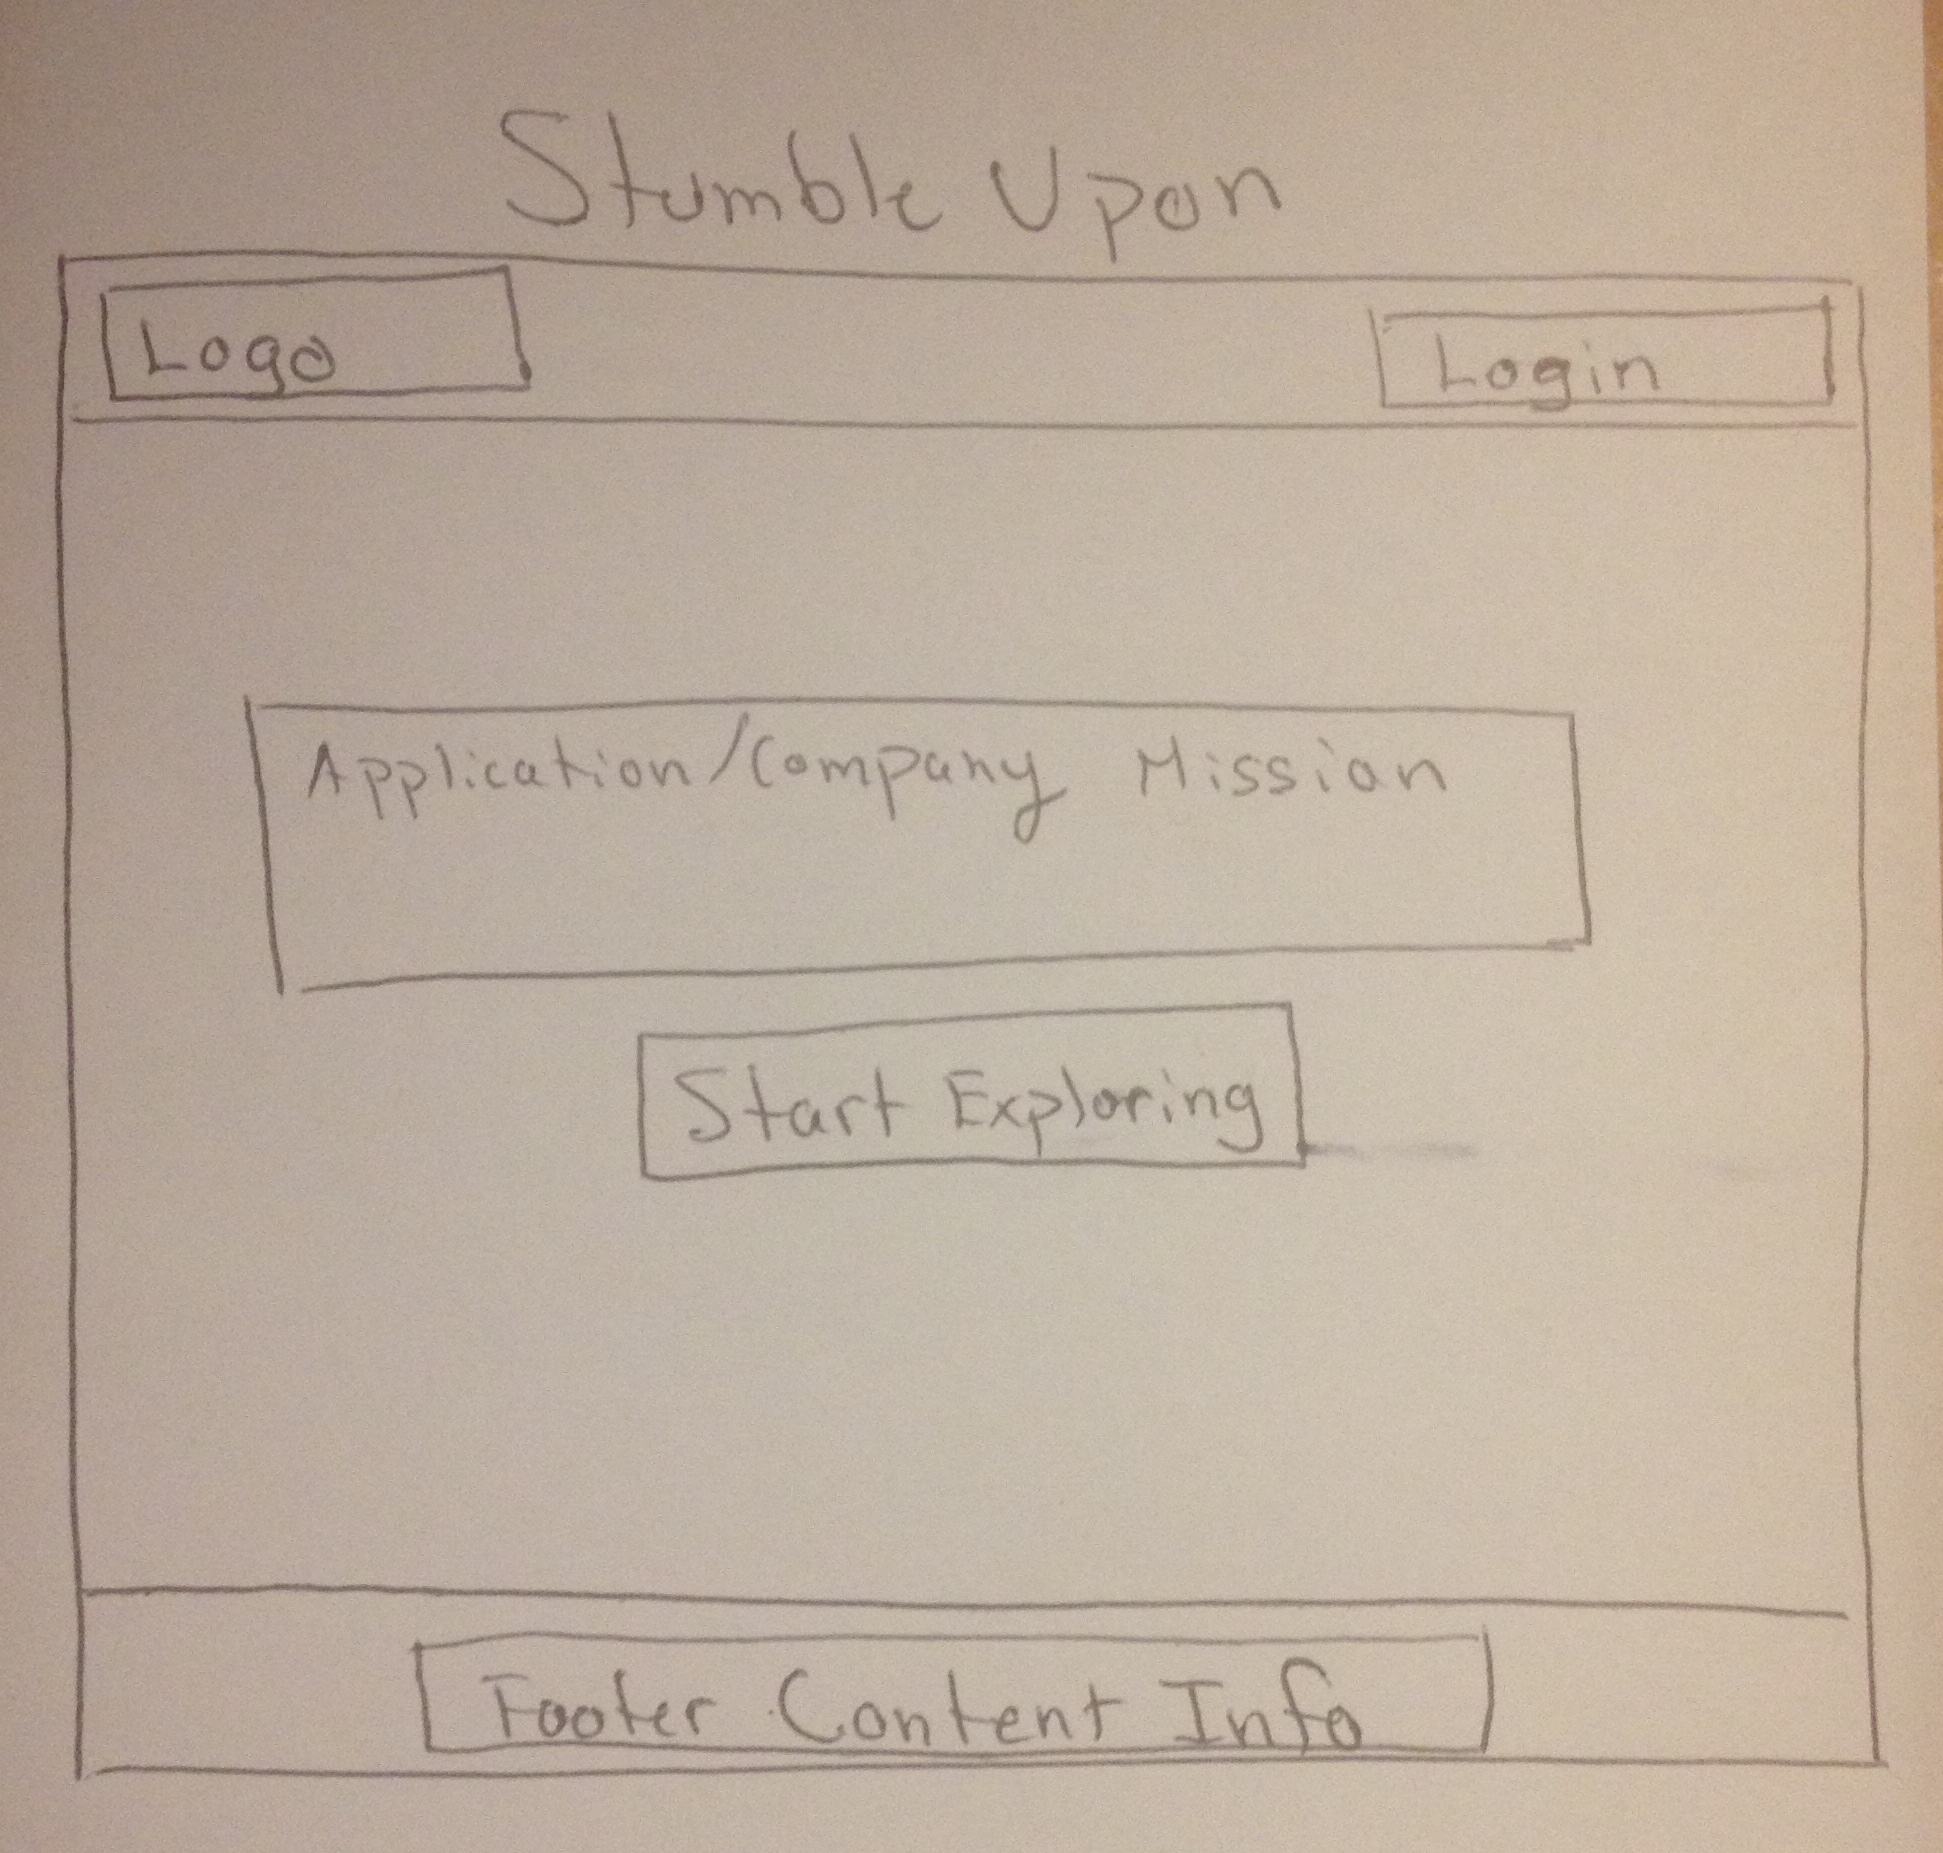 Stumble Upon
Logo
Login
Application/Company Mission
Start Exploring
Footer Content Info